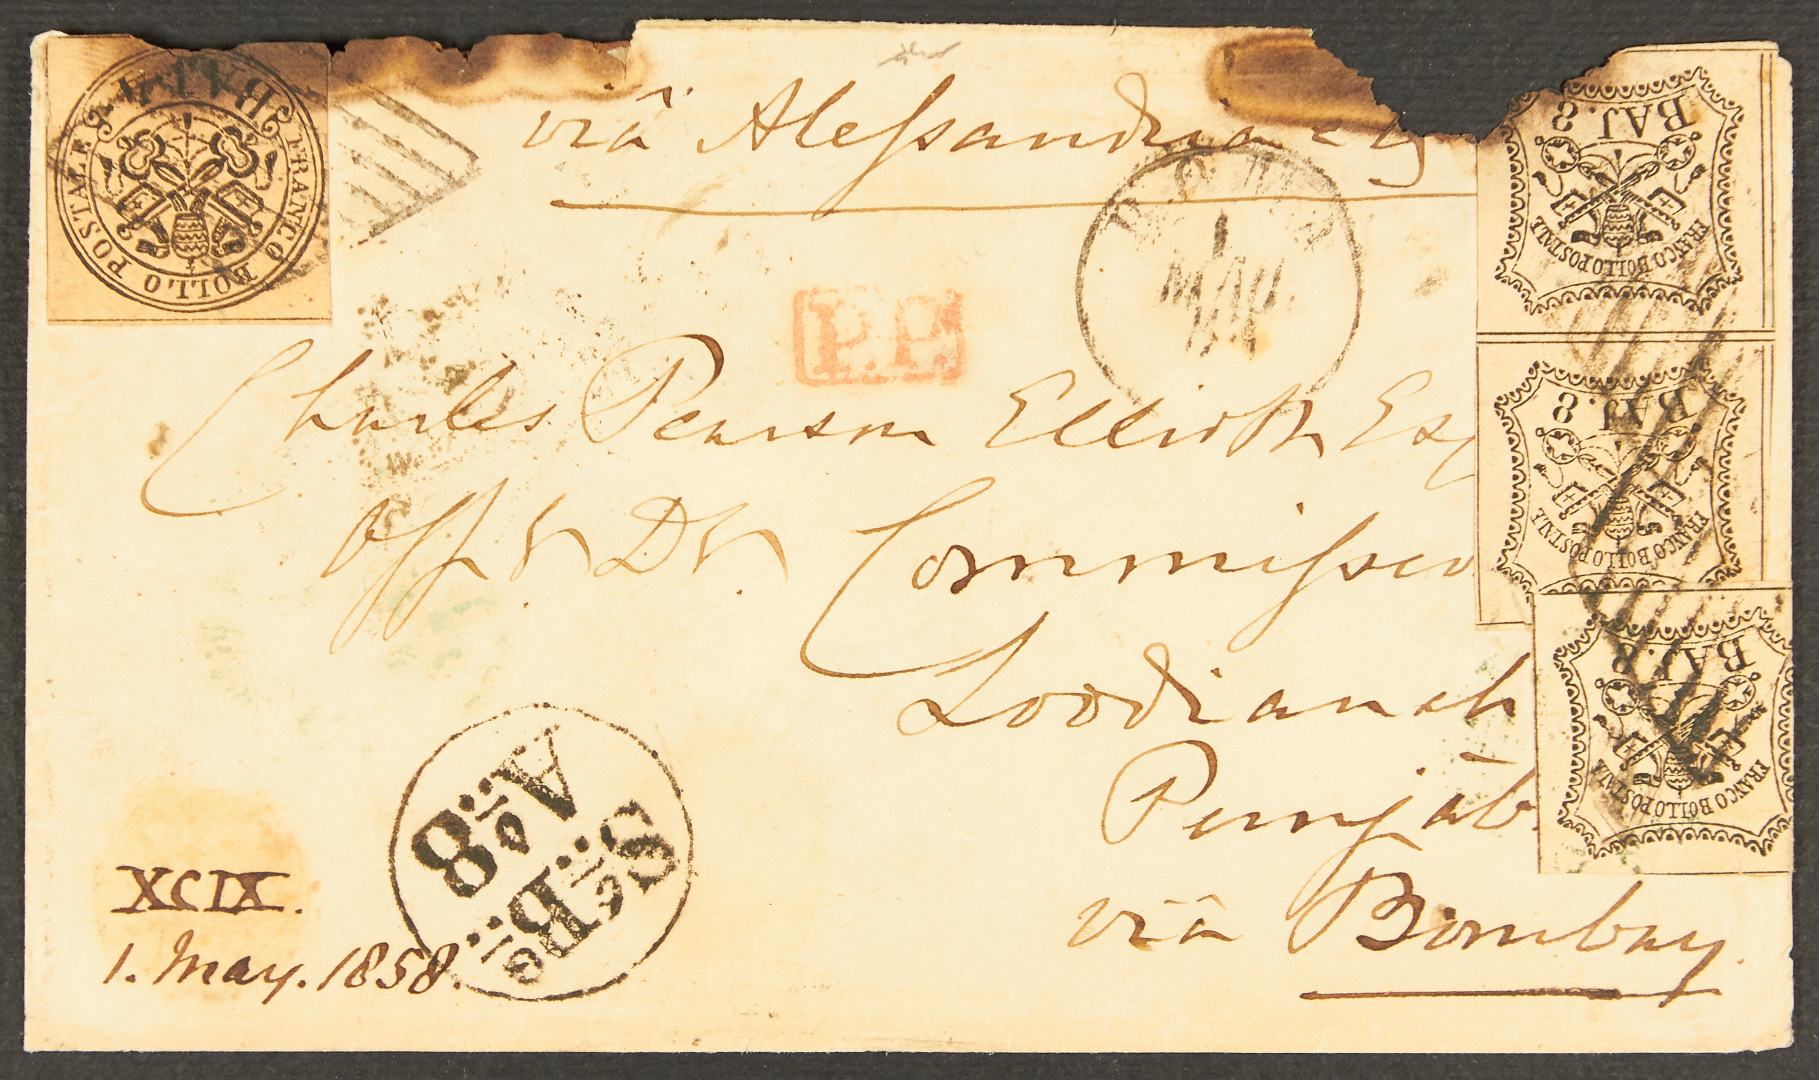 viâ Alessandria
FRANCO BOLLO POSTALE
BAJ. 8
FRANCO BOLLO POSTALE
BAJ. 8
FRANCO BOLLO POSTALE
BAJ. 8
FRANCO BOLLO POSTALE
ROMA
1
MAG.
P.P.
Charles Pearson Elliott Esq
Offg Dy Commissio
Loodianah
Punjâb
viâ Bombay
XCIX.
1. May. 1858.